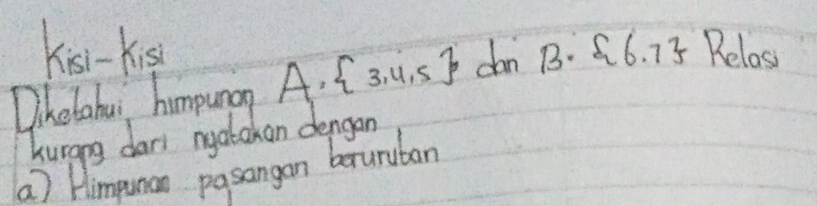 Kisi-kisi
Diketahui himpunan A. {3,4,5} dan B. {6.7} Relasi
kurang dari nyatakan dengan
a) Himpunan pasangan berurutan